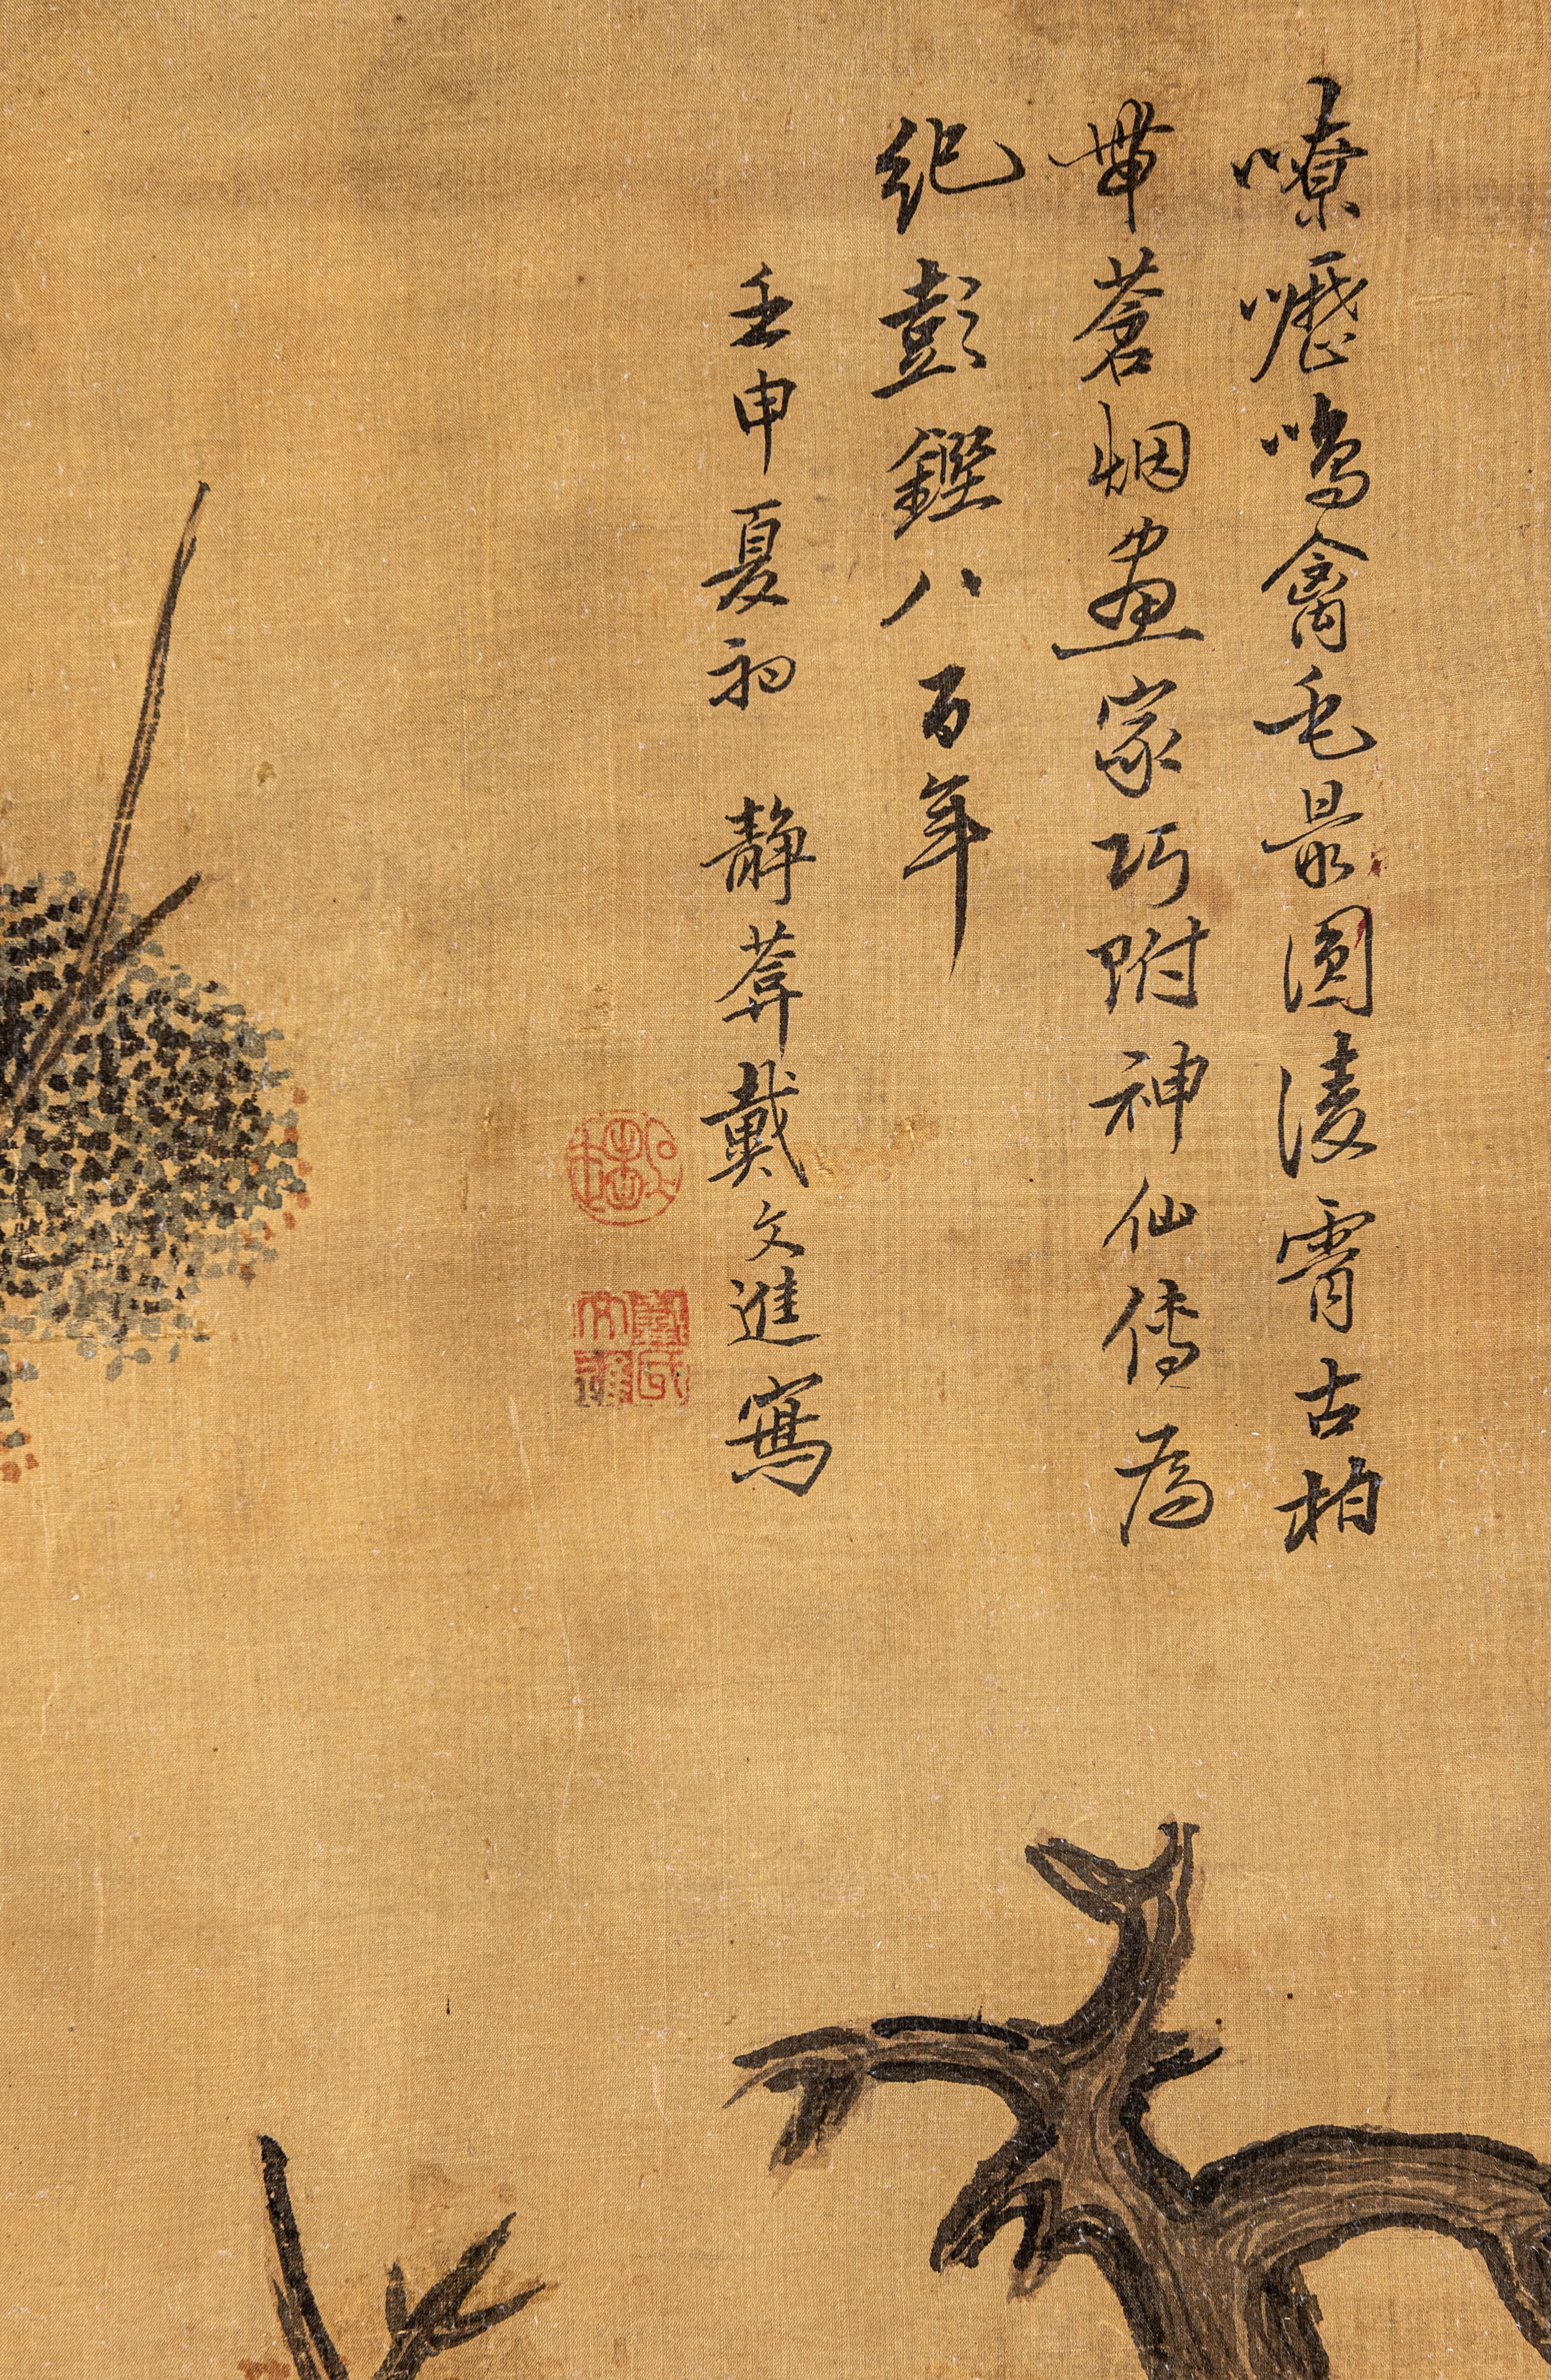 嘹嚦鳴禽毛最圓凌霄古柏
帶蒼烟畫家巧附神仙傳為
紀彭鏗八百年
壬申夏初 靜菴戴文進寫
戴氏文進